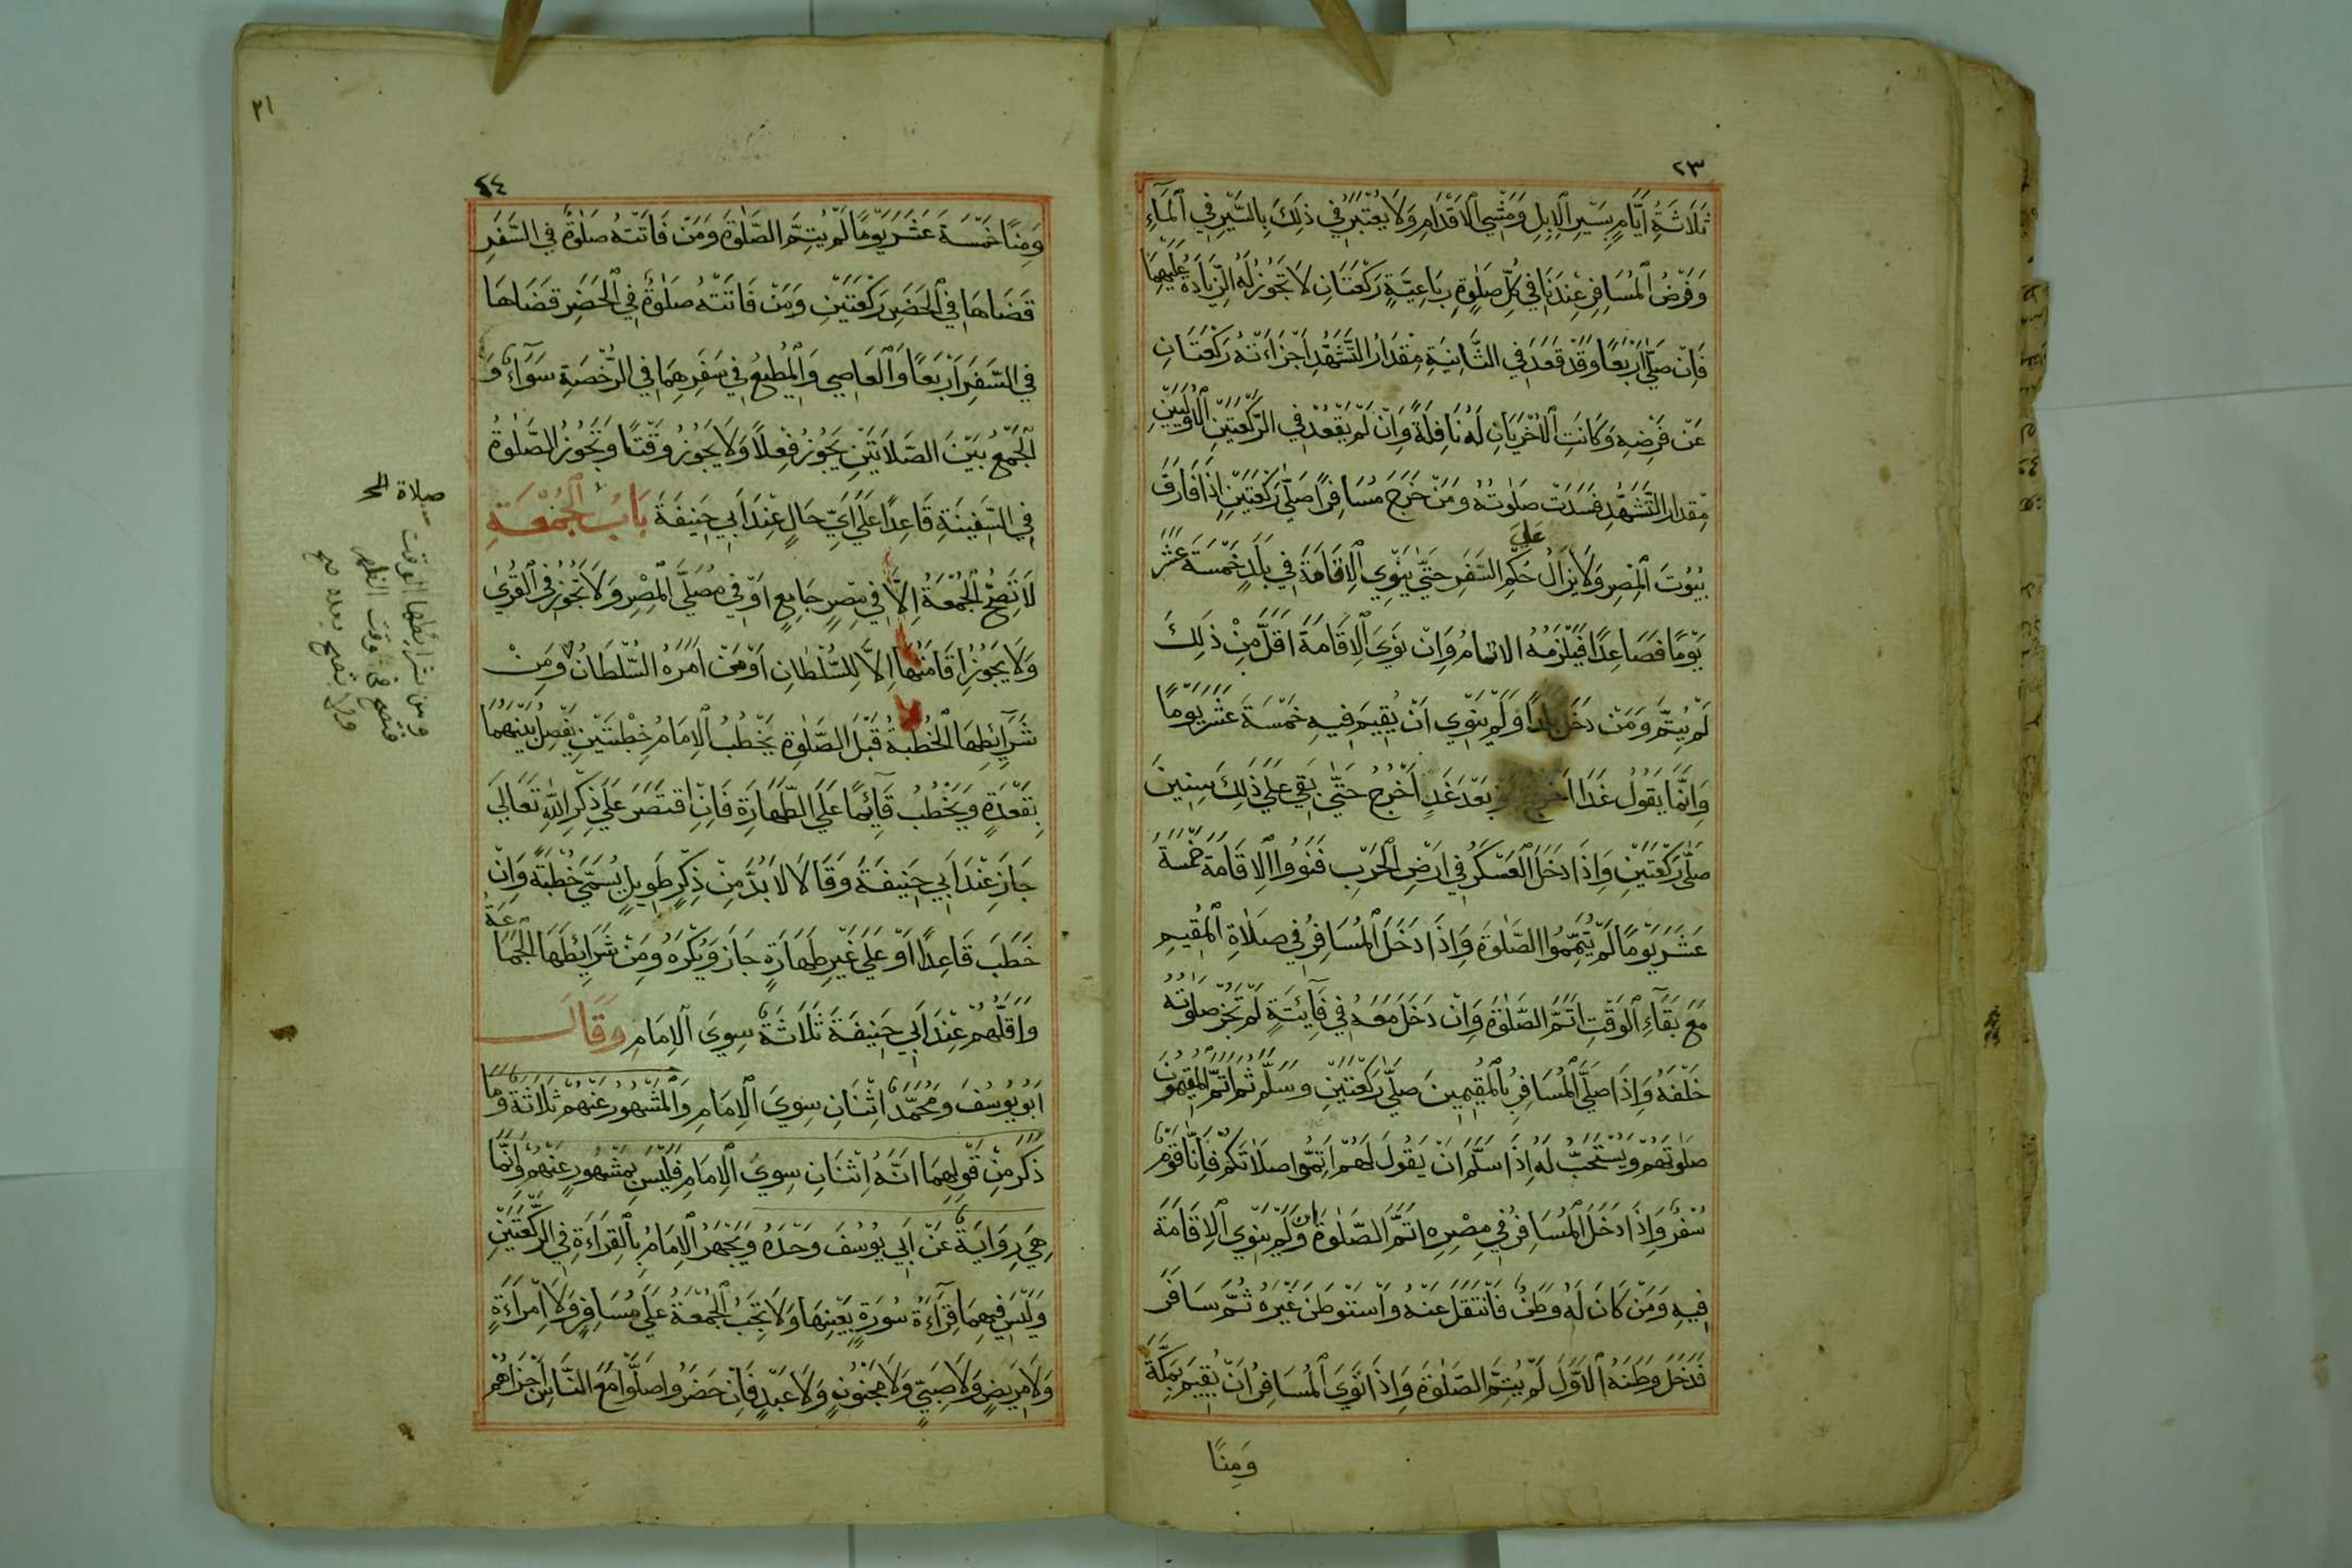 ٢٣
ثَلَاثَةُ اَيَّامٍ بِسَيْرِ الْاِبِلِ وَمَشْيِ الْاَقْدَامِ وَلَا يُعْتَبَرُ فِي ذٰلِكَ بِالسَّيْرِ فِي الْمَاءِ
وَفَرْضُ الْمُسَافِرِ عِنْدَنَا فِي كُلِّ صَلٰوةٍ رُبَاعِيَّةٍ رَكْعَتَانِ لَا تَجُوزُ لَهُ الزِّيَادَةُ عَلَيْهِمَا
فَاِنْ صَلَّى اَرْبَعًا وَقَدْ قَعَدَ فِي الثَّانِيَةِ مِقْدَارَ التَّشَهُّدِ اَجْزَاَتْهُ رَكْعَتَانِ
عَنْ فَرْضِهِ وَكَانَتِ الْاُخْرَيَانِ لَهُ نَافِلَةً وَاِنْ لَمْ يَقْعُدْ فِي الرَّكْعَتَيْنِ الْاُولَيَيْنِ
مِقْدَارَ التَّشَهُّدِ فَسَدَتْ صَلٰوتُهُ وَمَنْ خَرَجَ مُسَافِرًا صَلَّى رَكْعَتَيْنِ اِذَا فَارَقَ
بُيُوتَ الْمِصْرِ وَلَا يَزَالُ عَلَى حُكْمِ السَّفَرِ حَتَّى يَنْوِي الْاِقَامَةَ فِي بَلَدٍ خَمْسَةَ عَشَرَ
يَوْمًا فَصَاعِدًا فَيَلْزَمُهُ الاتمامُ وَاِنْ نَوَى الْاِقَامَةَ اَقَلَّ مِنْ ذٰلِكَ
لَمْ يُتِمَّ وَمَنْ دَخَلَ بَلَدًا وَلَمْ يَنْوِي اَنْ يُقِيمَ فِيهِ خَمْسَةَ عَشَرَ يَوْمًا
وَاِنَّمَا يَقُولُ غَدًا اَخْرُجُ وَ بَعْدَ غَدٍ اَخْرُجُ حَتَّى بَقِيَ عَلَى ذٰلِكَ سِنِينَ
صَلَّى رَكْعَتَيْنِ وَاِذَا دَخَلَ الْعَسْكَرُ فِي اَرْضِ الْحَرْبِ فَنَوُوا الْاِقَامَةَ خَمْسَةَ
عَشَرَ يَوْمًا لَمْ يُتِمُّوا الصَّلٰوةَ وَاِذَا دَخَلَ الْمُسَافِرُ فِي صَلَاةِ الْمُقِيمِ
مَعَ بَقَاءِ الْوَقْتِ اَتَمَّ الصَّلٰوةَ وَاِنْ دَخَلَ مَعَهُ فِي فَآئِتَةٍ لَمْ تَجُزْ صَلٰوتُهُ
خَلْفَهُ وَاِذَا صَلَّى الْمُسَافِرُ بِالْمُقِيمِينَ صَلَّى رَكْعَتَيْنِ وَسَلَّمَ ثُمَّ اَتَمَّ الْمُقِيمُونَ
صَلٰوتَهُمْ وَيُسْتَحَبُّ لَهُ اِذَا سَلَّمَ اَنْ يَقُولَ لَهُمْ اَتِمُّوا صَلَاتَكُمْ فَاِنَّا قَوْمٌ
سَفْرٌ وَاِذَا دَخَلَ الْمُسَافِرُ فِي مِصْرِهِ اَتَمَّ الصَّلٰوةَ وَان لَمْ يَنْوِي الْاِقَامَةَ
فِيهِ وَمَنْ كَانَ لَهُ وَطَنٌ فَانْتَقَلَ عَنْهُ وَاسْتَوْطَنَ غَيْرَهُ ثُمَّ سَافَرَ
فَدَخَلَ وَطَنَهُ الْاَوَّلَ لَمْ يُتِمَّ الصَّلٰوةَ وَاِذَا نَوَى الْمُسَافِرُ اَنْ يُقِيمَ بِمَكَّةَ
وَمِنًا
٢١
٢٤
وَمِنًا خَمْسَةَ عَشَرَ يَوْمًا لَمْ يُتِمَّ الصَّلٰوةَ وَمَنْ فَاتَتْهُ صَلٰوةٌ فِي السَّفَرِ
قَضَاهَا فِي الْحَضَرِ رَكْعَتَيْنِ وَمَنْ فَاتَتْهُ صَلٰوةٌ فِي الْحَضَرِ قَضَاهَا
فِي السَّفَرِ اَرْبَعًا وَالْعَاصِي وَالْمُطِيعُ فِي سَفَرِهِمَا فِي الرُّخْصَةِ سَوَآءٌ وَ
الْجَمْعُ بَيْنَ الصَّلَاتَيْنِ يَجُوزُ فِعْلًا وَلَا يَجُوزُ وَقْتًا وَتَجُوزُ الصَّلٰوةُ
فِي السَّفِينَةِ قَاعِدًا عَلَى اَيِّ حَالٍ عِنْدَ اَبِي حَنِيفَةَ بَابُ الْجُمْعَةِ
لَا تَصِحُّ الْجُمْعَةُ اِلَّا فِي مِصْرٍ جَامِعٍ اَوْ فِي مُصَلَّى الْمِصْرِ وَلَا تَجُوزُ فِي الْقُرٰى
وَلَا يَجُوزُ اِقَامَتُهَا اِلَّا لِلسُّلْطَانِ اَوْ مَنْ اَمَرَهُ السُّلْطَانُ وَمِنْ
شَرَآئِطِهَا الْخُطْبَةُ قَبْلَ الصَّلٰوةِ يَخْطُبُ الْاِمَامُ خُطْبَتَيْنِ يَفْصِلُ بَيْنَهُمَا
بِقَعْدَةٍ وَيَخْطُبُ قَآئِمًا عَلَى الطَّهَارَةِ فَاِنِ اقْتَصَرَ عَلَى ذِكْرِ اللهِ تَعَالَى
جَازَ عِنْدَ اَبِي حَنِيفَةَ وَقَالَا لَا بُدَّ مِنْ ذِكْرٍ طَوِيلٍ يُسَمَّى خُطْبَةً وَاِنْ
خَطَبَ قَاعِدًا اَوْ عَلَى غَيْرِ طَهَارَةٍ جَازَ وَيُكْرَهُ وَمِنْ شَرَائِطِهَا الْجَمَاعَةُ
وَاَقَلُّهُمْ عِنْدَ اَبِي حَنِيفَةَ ثَلَاثَةٌ سِوَى الْاِمَامِ وَقَالَ
اَبُو يُوسُفَ وَمُحَمَّدٌ اِثْنَانِ سِوَى الْاِمَامِ وَالْمَشْهُورُ عَنْهُمْ ثَلَاثَةٌ وَمَا
ذَكَرَ مِنْ قَوْلِهِمَا اَنَّهُ اِثْنَانِ سِوَى الْاِمَامِ فَلَيْسَ بِمَشْهُورٍ عَنْهُمْ وَاِنَّمَا
هِيَ رِوَايَةٌ عَنْ اَبِي يُوسُفَ وَحْدَهُ وَيَجْهَرُ الْاِمَامُ بِالْقِرَاءَةِ فِي الرَّكْعَتَيْنِ
وَلَيْسَ فِيهِمَا قِرَآءَةُ سُورَةٍ بِعَيْنِهَا وَلَا تَجِبُ الْجُمْعَةُ عَلَى مُسَافِرٍ وَلَا اِمْرَاَةٍ
وَلَا مَرِيضٍ وَلَا صَبِيٍّ وَلَا مَجْنُونٍ وَلَا عَبْدٍ فَاِنْ حَضَرُوا صَلَّوْا مَعَ النَّاسِ اَجْزَاهُمْ
ومن شرائطها الوقت
فتصح في وقت الظهر
ولا تصح بعده صح